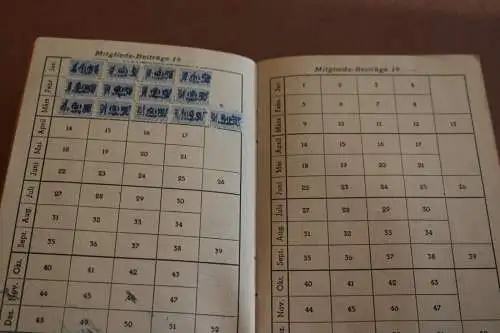 Mitglieds-Beiträge 19
Jan.
Febr.
März
April 14 15 16 17
Mai 18 19 20 21
Juni 22 23 24 25 26
Juli 27 28 29 30
Aug. 31 32 33 34
Sept. 35 36 37 38 39
Okt. 40 41 42 43
Nov. 44 45 46 47
Dez. 48 49 50 51 52
Mitglieds-Beiträge 19
Jan. 1 2 3 4
Febr. 5 6 7 8
März 9 10 11 12 13
April 14 15 16 17
Mai 18 19 20 21
Juni 22 23 24 25 26
Juli 27 28 29 30
Aug. 31 32 33 34
Sept. 35 36 37 38 39
Okt. 40 41 42 43
Nov. 44 45 46 47
48 49 50 51